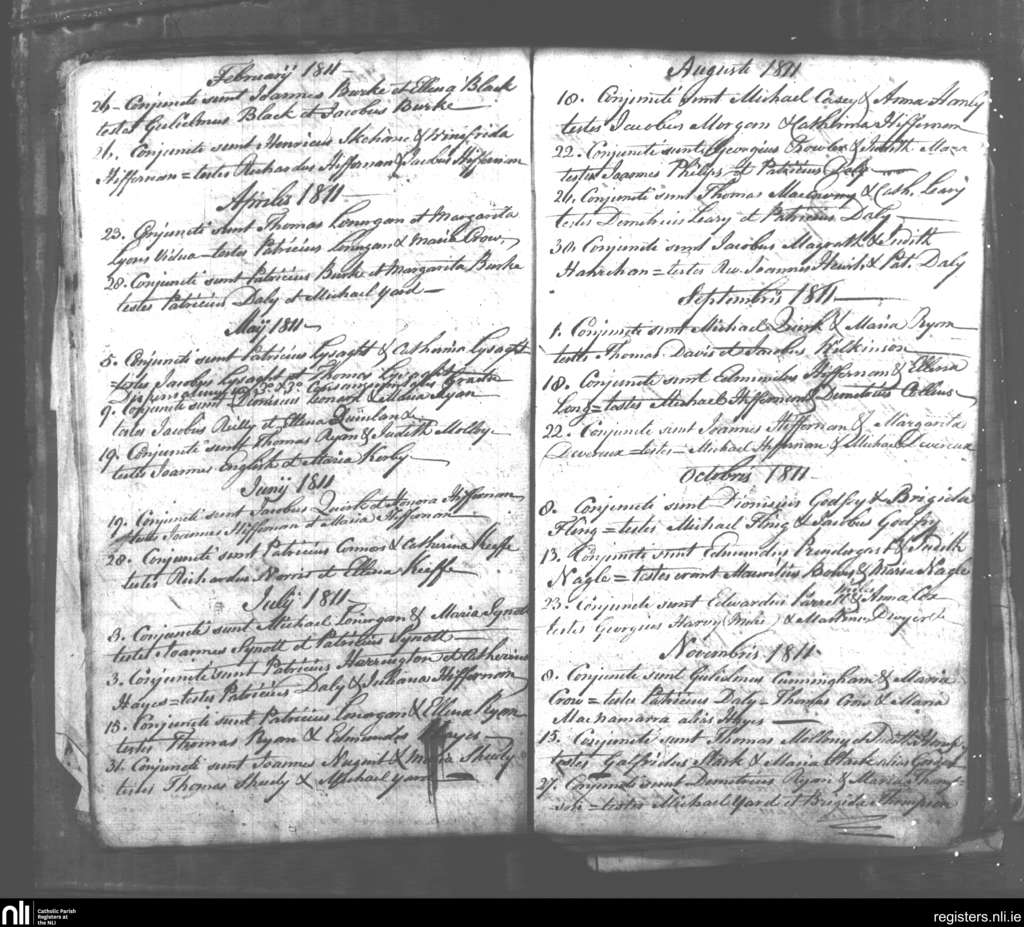 Februarij 1811
26 - Conjuncti sunt Joannes Burke et Ellena Black
testes Gulielmus Black et Jacobus Burke
26. Conjuncti sunt Henricus & Winefrida
Hiffernan = testes Richardus Hiffernan & Jacobus Hiffernan
Aprilis 1811
23. Conjuncti sunt Thomas Lonergan et Margarita
Lyons Vidua = testes Patricius Lonergan & Maria Crow
28. Conjuncti sunt Patricius Burke et Margarita Burke
testes Patricius Daly et Michael Yard
Maij 1811
5. Conjuncti sunt Patricius Lysaght & Catharina Lysaght
= testes Jacobus Lysaght et Thomas Lysaght
3° & 3° Consanguinitatis Gradu
9. Conjuncti sunt Dionisius Leonard & Maria Ryan
testes Jacobus Reilly et Ellena Quinlan
19. Conjuncti sunt Thomas Ryan & Judith Molloy
testes Joannes English et Maria Kerby
Junij 1811
19. Conjuncti sunt Jacobus Quirk et Honora Hiffernan
testes Joannes Hiffernan et Maria Hiffernan
28. Conjuncti sunt Patricius Connors & Catharina Keeffe
testes Richardus Norris et Ellena Keeffe
Julij 1811
3. Conjuncti sunt Michael Lonergan & Maria Synott
testes Joannes Synott et Patricius Synott
3. Conjuncti sunt Patricius Harrington et Catherina
Hayes = testes Patricius Daly & Juliana Hiffernan
15. Conjuncti sunt Patricius Lonergan & Ellena Ryan
testes Thomas Ryan & Edmundus Hayes
31. Conjuncti sunt Joannes Nugent & Maria Sheedy
testes Thomas Sheedy & Michael Yard
Augusti 1811
18. Conjuncti sunt Michael Casey & Anna Hanly
testes Jacobus Morgan & Catharina Hiffernan
22. Conjuncti sunt Georgius Bowles & Judith Mara
testes Joannes Philips et Patricius Daly
24. Conjuncti sunt Thomas & Cath. Leary
testes Demetrius Leary et Patricius Daly
30. Conjuncti sunt Jacobus Magrath & Judith
Hanrahan = testes Rev. Joannes & Pat. Daly
Septembris 1811
1. Conjuncti sunt Michael Quirk & Maria Ryan
testes Thomas Davis et Jacobus Wilkinson
18. Conjuncti sunt Edmundus Hiffernan & Ellena
Long = testes Michael Hiffernan & Demetrius Collins
22. Conjuncti sunt Joannes Hiffernan & Margarita
Devereux = testes - Michael Hiffernan & Michael Devereux
Octobris 1811
8. Conjuncti sunt Dionisius Godfry & Brigida
Fling = testes Michael Fling & Jacobus Godfry
13. Conjuncti sunt Edmundus Prendergast & Judith
Nagle = testes erant Mauritius & Maria Nagle
23. Conjuncti sunt Edwardus & Anna Cox
testes Georgius Harvy & Martinus Dwyer
Novembris 1811
8. Conjuncti sunt Gulielmus Cunningham & Maria
Crow = testes Patricius Daly - Thomas Crow & Maria
Macnamarra alias Hayes
15. Conjuncti sunt Thomas Mellony et
testes Galfridus Stack & Maria Stack alias
27. Conjuncti sunt Demetrius Ryan & Maria
= testes Michael Yard et Brigida Thompson
nli
Catholic Parish
Registers at
the NLI
registers.nli.ie